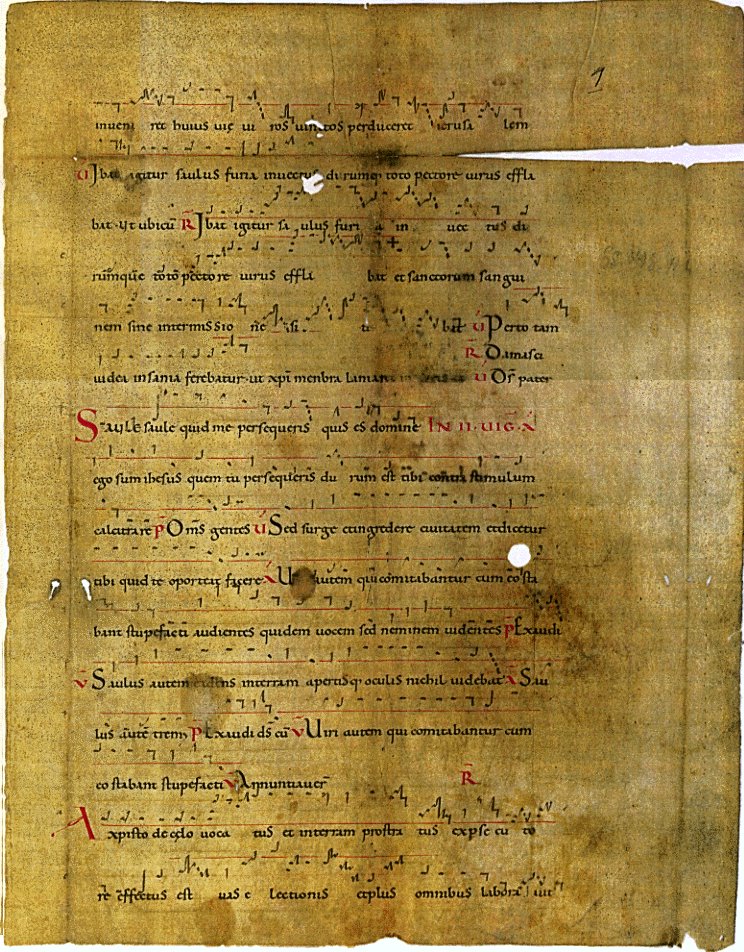 inveni ret huius uie ui ros uinctos perduceret ierusa lem
UJbat igitur saulus furia inuectus dirumq; toto pectore uirus effla
bat· Ut ubicū R̄ Jbat igitur sa ulus furi a in uec tus di
rumque toto pectore uirus effla bat et sanctorum sangui
nem sine intermissio ne si ti bat ū Perto tam
R̄ Damasci
iudea insania ferebatur· ut xp̄i menbra ū Ds̄ pater
SAULE saule quid me persequeris quis es domine IN II· UIG· A
ego sum ihesus quem tu persequeris du rum est tibi contra stimulum
calcitrare p̄ Oms̄ gentes Ū Sed surge et ingredere ciuitatem et dicetur
tibi quid te oporteat facere A autem qui comitabantur cum eo sta
bant stupefacti audientes quidem uocem sed neminem uidentes p Exaudi
v̄ Saulus autem interram apertisq; oculis nichil uidebat A Sau
lus autē trem; p Exaudi ds̄ cū v̄ Uiri autem qui comitabantur cum
eo stabant stupefacti v̄ Annuntiauer̄ R̄
A xpisto de celo uoca tus et interram prostra tus ex pse cu to
re effectus est uas e lectionis et plus omnibus labora uit